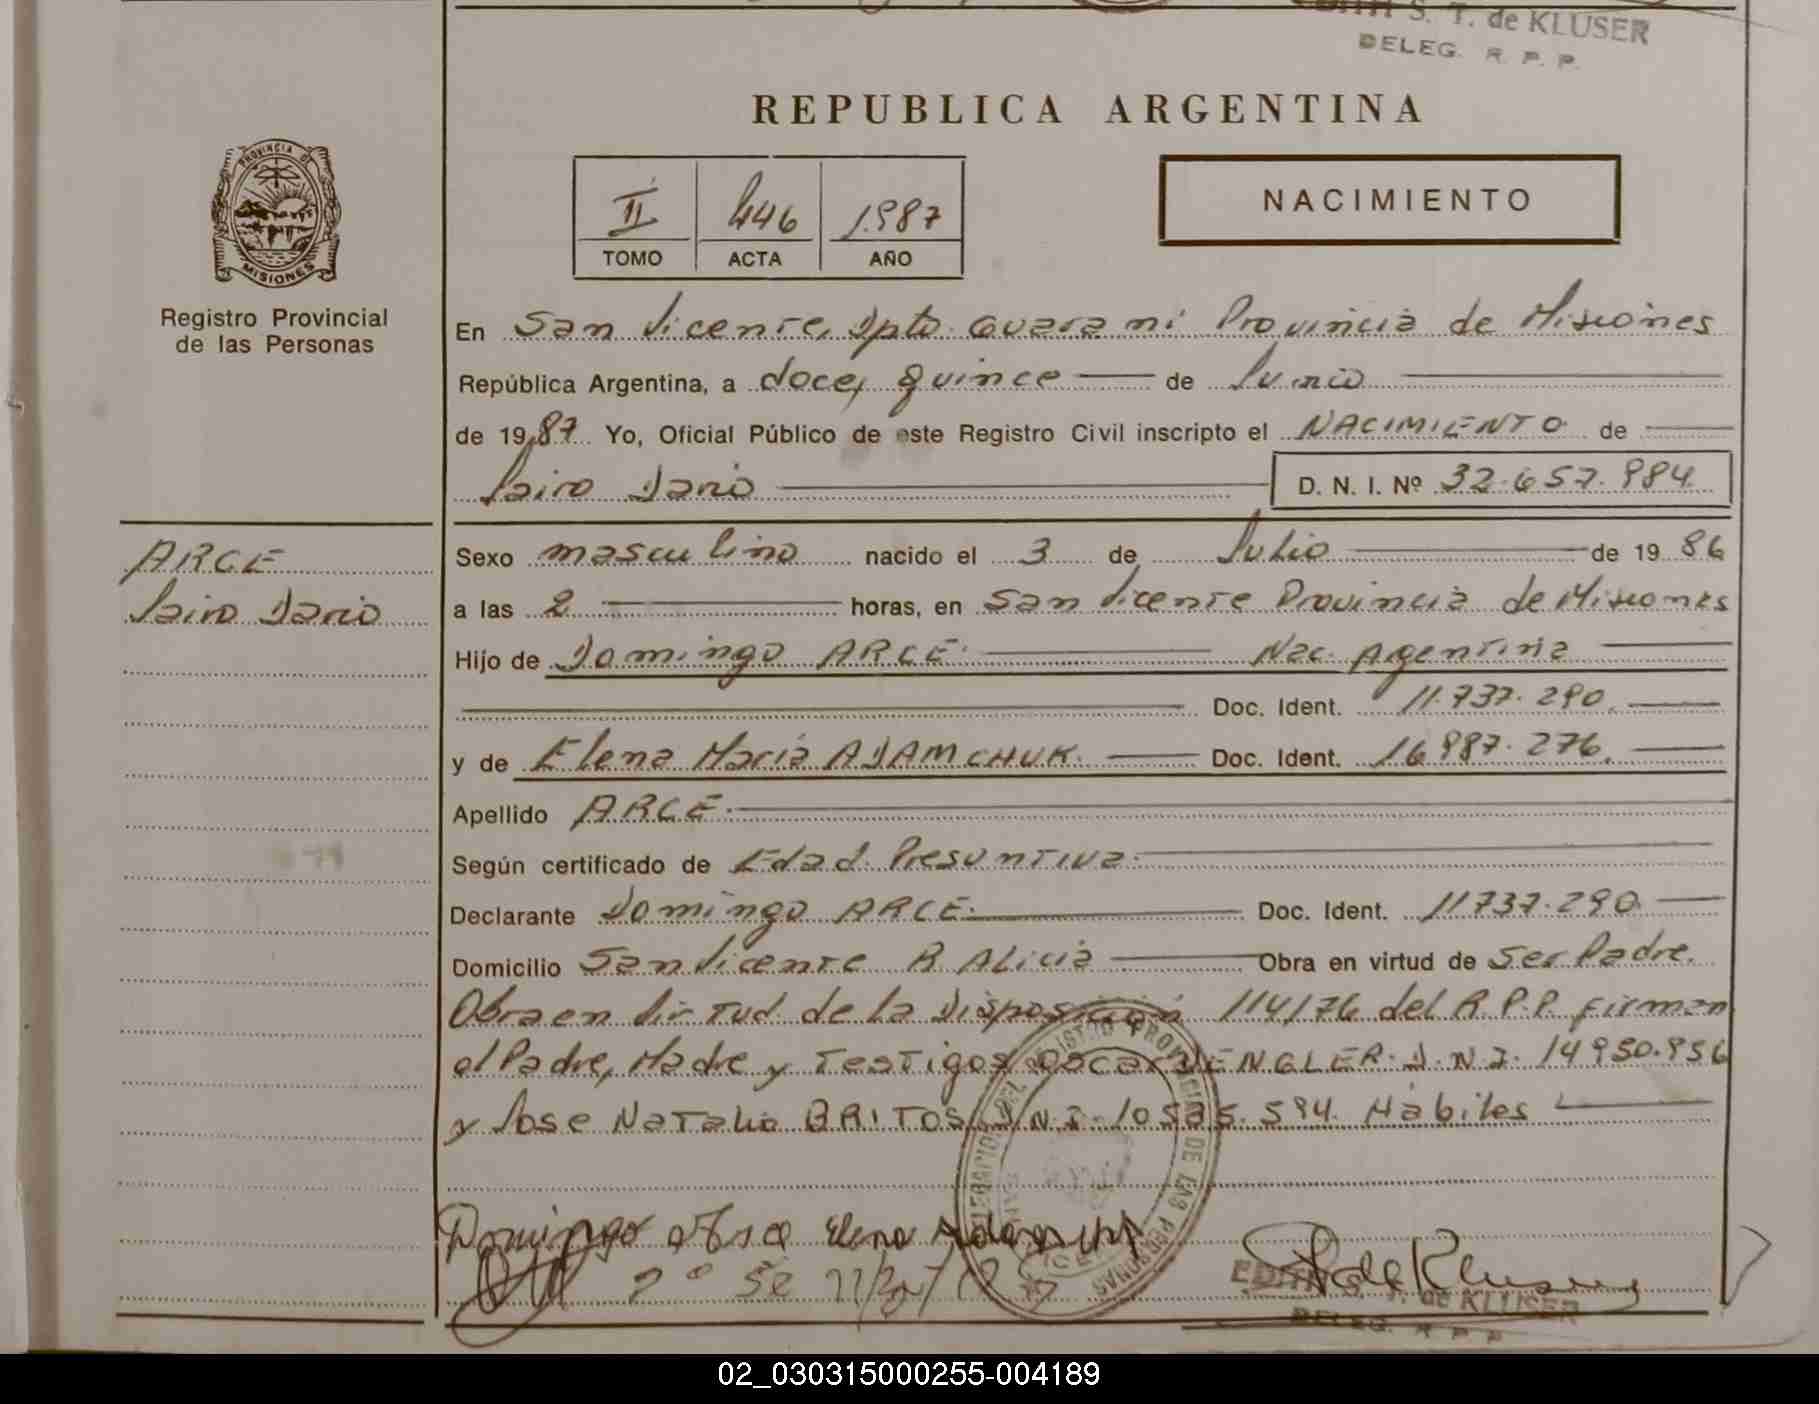 S. T. de KLUSER
DELEG. R. P. P.
REPUBLICA ARGENTINA
PROVINCIA DE
MISIONES
Registro Provincial
de las Personas
II 446 1.987
TOMO ACTA AÑO
NACIMIENTO
En San Vicente, Dpto. Guarani Provincia de Misiones
República Argentina, a doce, quince de Junio
de 1987. Yo, Oficial Público de este Registro Civil inscripto el NACIMIENTO de
Jairo Dario D. N. I. Nº 32.657.984
ARCE
Jairo Dario
Sexo masculino nacido el 3 de Julio de 1986
a las 2 horas, en San Vicente Provincia de Misiones
Hijo de Domingo ARCE. Nac. Argentina
Doc. Ident. 11.737.290.
y de Elena Maria ADAMCHUK. Doc. Ident. 16987.276.
Apellido ARCE.
Según certificado de Edad Presuntiva.
Declarante Domingo ARCE. Doc. Ident. 11737.290.
Domicilio San Vicente R Alicia Obra en virtud de Ser Padre.
Obra en Virtud de la Disposición 114/76 del R.P.P. firman
el Padre, Madre y Testigos Oscar DENGLER. D.N.I. 14950.956
y Jose Natalio BRITOS D.N.I. 10.585.594. Habiles
Domingo Elena
EDITH S. T. de KLUSER
DELEG. R. P. P.
02_030315000255-004189